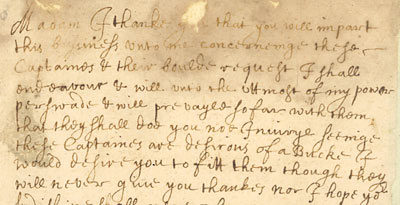 Madam I thanke you that you will impart
this busines unto me concerninge these
Captaines & their boulde request I shall
endeavour & will unto the uttmost of my power
perswade & will prevayle so far with them
that they shall doe you noe Iniurye seeinge
these Captaines are desirous of a Bucke I
would desire you to fitt them though they
will never give you thankes nor I hope yor